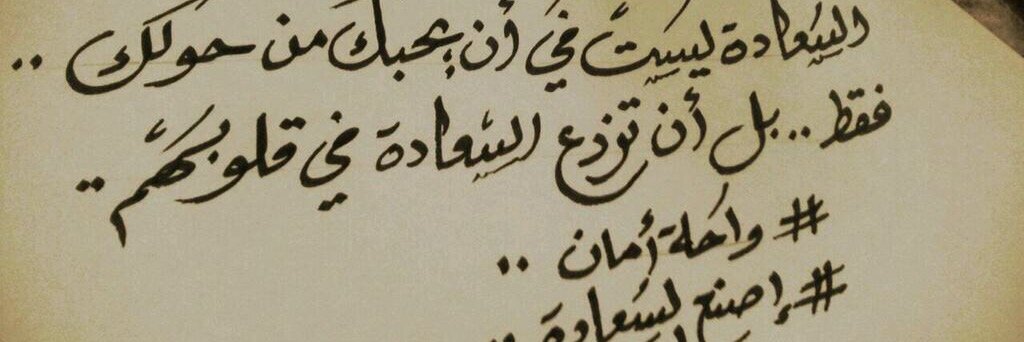 السعادة ليست في أن يحبك من حولك ..
فقط .. بل أن تزرع السعادة في قلوبهم ..
# واحة أمان ..
# إصنع لسعادة ..